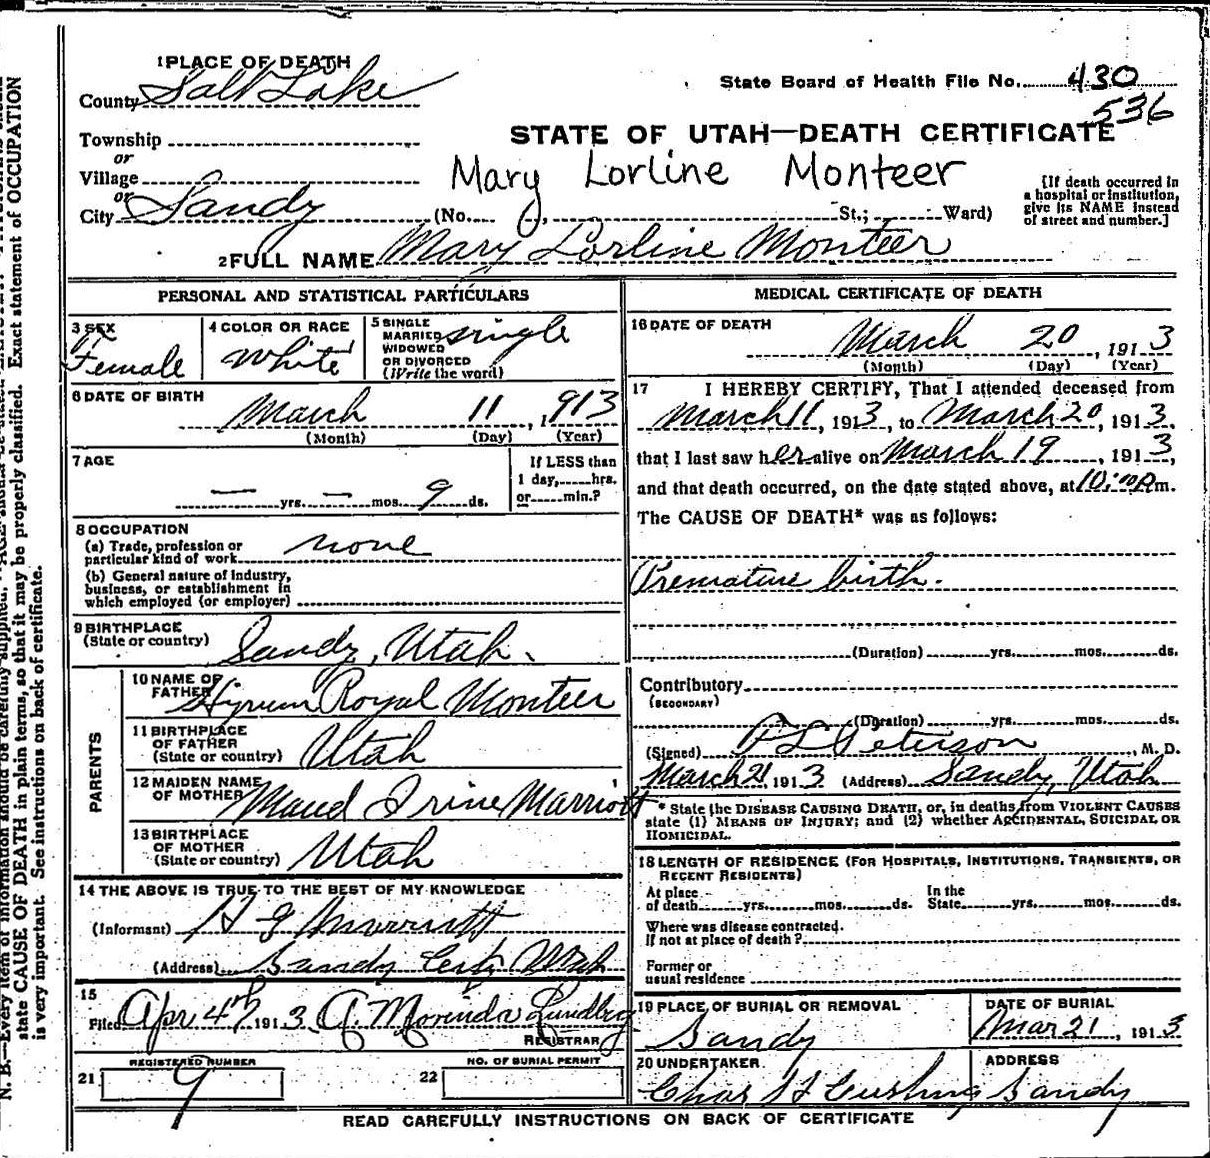 1 PLACE OF DEATH
County Salt Lake
State Board of Health File No. 430
536
Township
or
Village
or
City Sandy
STATE OF UTAH—DEATH CERTIFICATE
Mary Lorline Monteer
(No. , St.; Ward)
[If death occurred in
a hospital or institution,
give its NAME instead
of street and number.]
2 FULL NAME Mary Lorline Monteer
PERSONAL AND STATISTICAL PARTICULARS
3 SEX
Female
4 COLOR OR RACE
White
5 SINGLE
MARRIED
WIDOWED
OR DIVORCED
(Write the word)
single
6 DATE OF BIRTH
March 11, 913
(Month) (Day) (Year)
7 AGE
— yrs. — mos. 9 ds.
If LESS than
1 day, hrs.
or min.?
8 OCCUPATION
(a) Trade, profession or
particular kind of work none
(b) General nature of industry,
business, or establishment in
which employed (or employer)
9 BIRTHPLACE
(State or country) Sandy, Utah.
PARENTS
10 NAME OF
FATHER Hyrum Royal Monteer
11 BIRTHPLACE
OF FATHER
(State or country) Utah
12 MAIDEN NAME
OF MOTHER Maud Irine Marriott
13 BIRTHPLACE
OF MOTHER
(State or country) Utah
14 THE ABOVE IS TRUE TO THE BEST OF MY KNOWLEDGE
(Informant) H G Marriott
(Address) Sandy City Utah
15
Filed Apr 4th 1913 A. Morinda Lundberg
REGISTRAR
REGISTERED NUMBER
21 9
NO. OF BURIAL PERMIT
22
MEDICAL CERTIFICATE OF DEATH
16 DATE OF DEATH
March 20, 1913
(Month) (Day) (Year)
17 I HEREBY CERTIFY, That I attended deceased from
March 11, 1913, to March 20, 1913,
that I last saw her alive on March 19, 1913,
and that death occurred, on the date stated above, at 10:00 P.m.
The CAUSE OF DEATH* was as follows:
Premature birth.
(Duration) yrs. mos. ds.
Contributory
(SECONDARY)
(Duration) yrs. mos. ds.
(Signed) Peterson, M. D.
March 21 1913 (Address) Sandy, Utah
* State the DISEASE CAUSING DEATH, or, in deaths from VIOLENT CAUSES
state (1) MEANS OF INJURY; and (2) whether ACCIDENTAL, SUICIDAL OR
HOMICIDAL.
18 LENGTH OF RESIDENCE (FOR HOSPITALS, INSTITUTIONS, TRANSIENTS, OR
RECENT RESIDENTS)
At place
of death yrs. mos. ds.
In the
State yrs. mos. ds.
Where was disease contracted.
If not at place of death?
Former or
usual residence
19 PLACE OF BURIAL OR REMOVAL
Sandy
DATE OF BURIAL
Mar 21, 1913
20 UNDERTAKER
Chas Cushing
ADDRESS
Sandy
READ CAREFULLY INSTRUCTIONS ON BACK OF CERTIFICATE
N. B.—Every item of information should be carefully supplied.
state CAUSE OF DEATH in plain terms, so that it may be properly classified. Exact statement of OCCUPATION
is very important. See instructions on back of certificate.